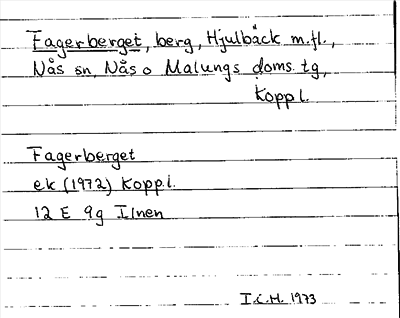 Fagerberget, berg, Hjulbäck m.fl.,
Nås sn, Nås o Malungs doms.tg,
Koppl.
Fagerberget
ek (1972) Koppl.
12 E 9g Ilnen
I.C.H. 1973